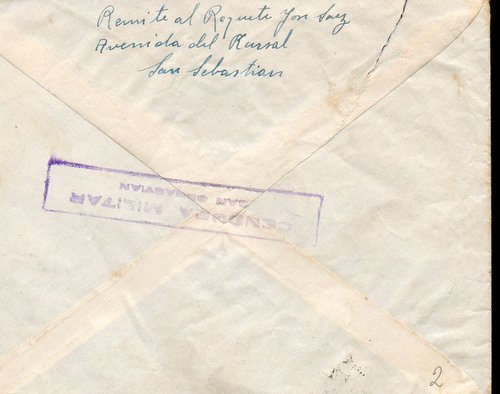 Remite al Requete Jose Saez
Avenida del Kursal
San Sebastian
CENSURA MILITAR
SAN SEBASTIAN
2